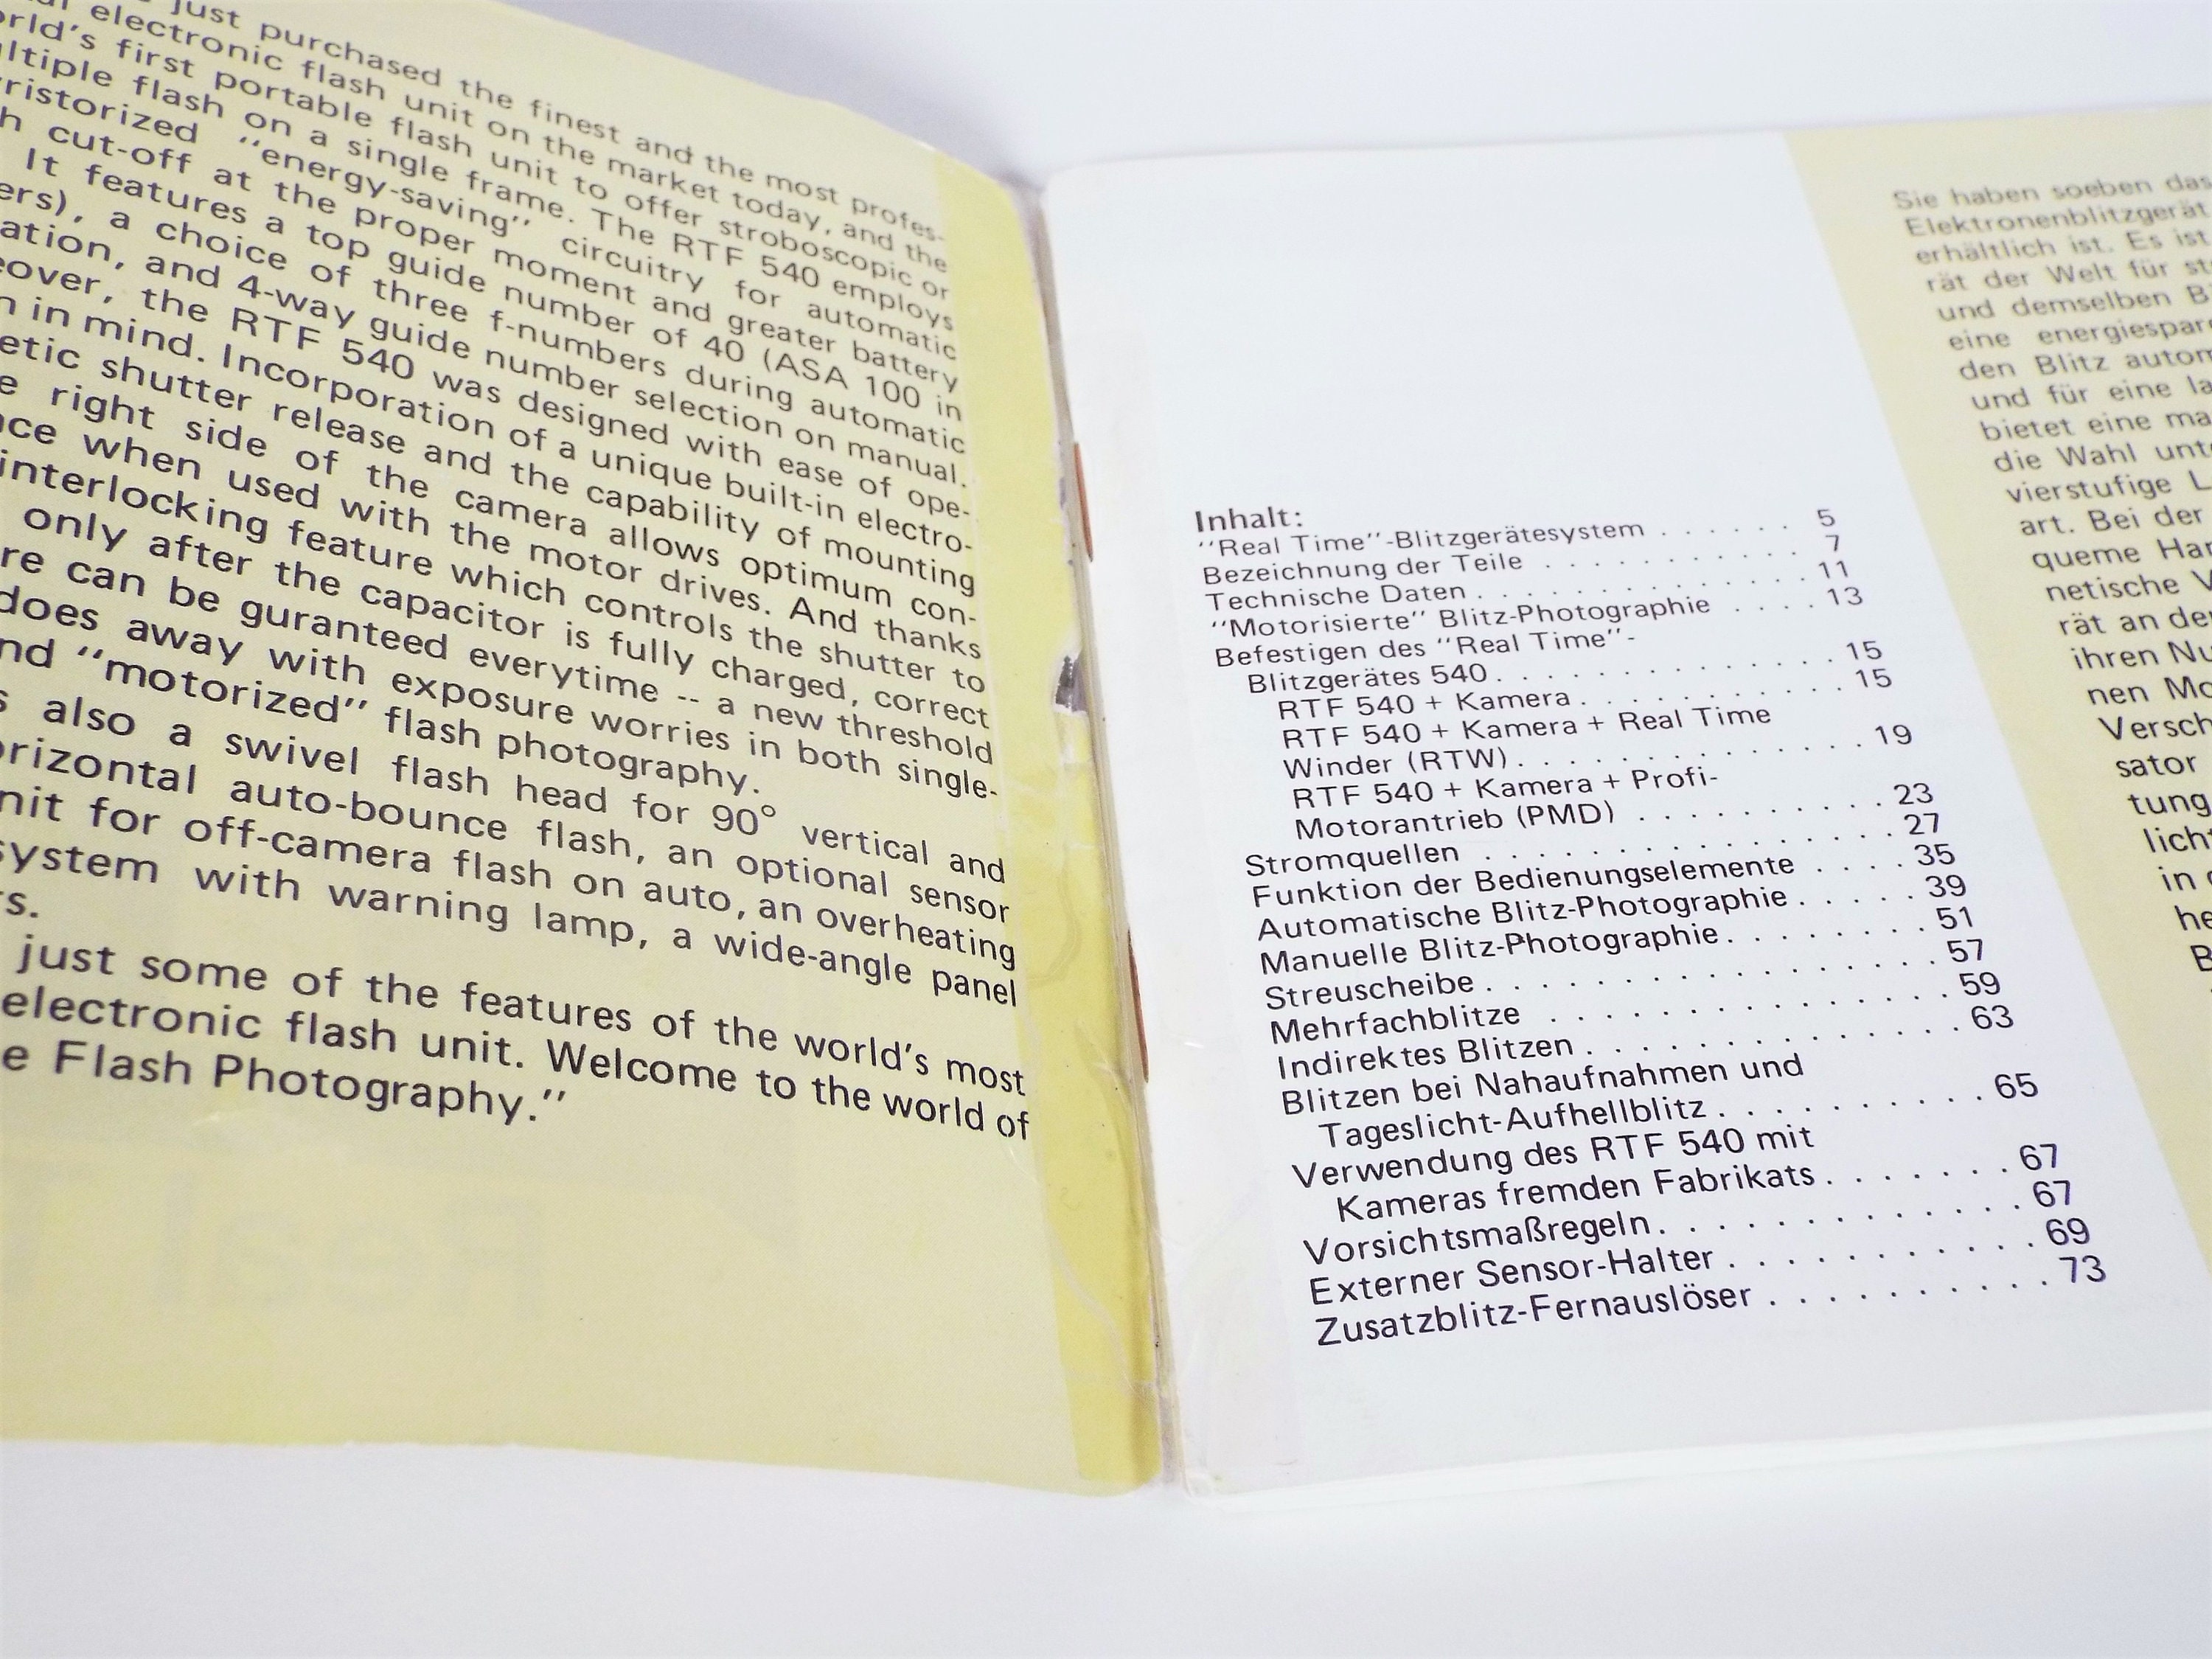 just purchased the finest and the most profes-
electronic flash unit on the market today, and the
first portable flash unit to offer stroboscopic or
flash on a single frame. The RTF 540 employs
"energy-saving" circuitry for automatic
cut-off at the proper moment and greater battery
It features a top guide number of 40 (ASA 100 in
a choice of three f-numbers during automatic
and 4-way guide number selection on manual.
the RTF 540 was designed with ease of ope-
in mind. Incorporation of a unique built-in electro-
shutter release and the capability of mounting
right side of the camera allows optimum con-
when used with the motor drives. And thanks
interlocking feature which controls the shutter to
only after the capacitor is fully charged, correct
can be guranteed everytime -- a new threshold
does away with exposure worries in both single-
"motorized" flash photography.
also a swivel flash head for 90° vertical and
auto-bounce flash, an optional sensor
for off-camera flash on auto, an overheating
system with warning lamp, a wide-angle panel
just some of the features of the world's most
electronic flash unit. Welcome to the world of
Flash Photography."
Inhalt:
"Real Time"-Blitzgerätesystem . . . . . . 5
Bezeichnung der Teile . . . . . . . . . . 7
Technische Daten . . . . . . . . . . . . . 11
"Motorisierte" Blitz-Photographie . . . . 13
Befestigen des "Real Time"-
Blitzgerätes 540 . . . . . . . . . . . . . 15
RTF 540 + Kamera . . . . . . . . . . . 15
RTF 540 + Kamera + Real Time
Winder (RTW) . . . . . . . . . . . . . 19
RTF 540 + Kamera + Profi-
Motorantrieb (PMD) . . . . . . . . . 23
Stromquellen . . . . . . . . . . . . . . . 27
Funktion der Bedienungselemente . . . . 35
Automatische Blitz-Photographie . . . . . 39
Manuelle Blitz-Photographie . . . . . . . . 51
Streuscheibe . . . . . . . . . . . . . . . . 57
Mehrfachblitze . . . . . . . . . . . . . . 59
Indirektes Blitzen . . . . . . . . . . . . . 63
Blitzen bei Nahaufnahmen und
Tageslicht-Aufhellblitz . . . . . . . . . . 65
Verwendung des RTF 540 mit
Kameras fremden Fabrikats . . . . . . . 67
Vorsichtsmaßregeln . . . . . . . . . . . . 67
Externer Sensor-Halter . . . . . . . . . . 69
Zusatzblitz-Fernauslöser . . . . . . . . . . 73
Sie haben soeben das
Elektronenblitzgerät
erhältlich ist. Es ist
rät der Welt für
und demselben
eine
den Blitz
und für eine
bietet eine
die Wahl
vierstufige
art. Bei der
queme
netische
rät an
ihren
nen
sator
tung
in